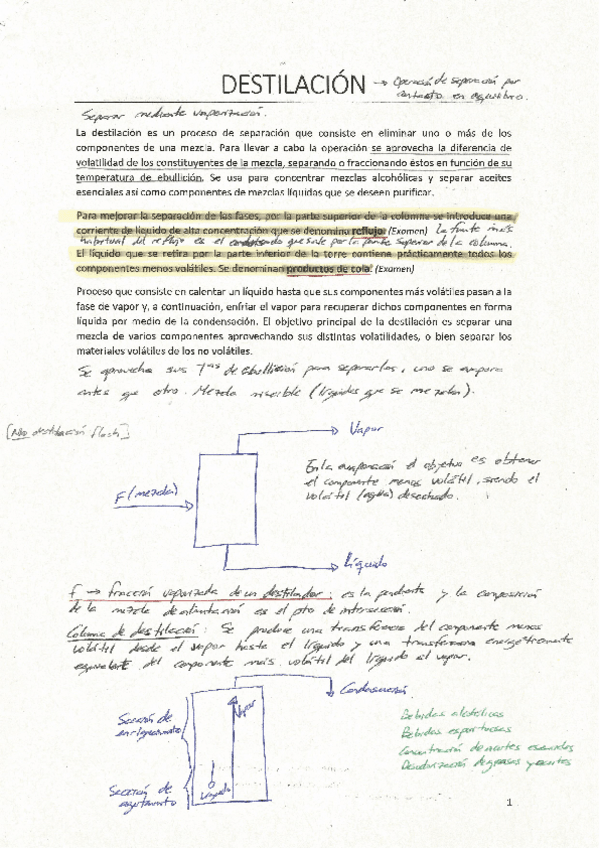 DESTILACIÓN → Operación de separación por
contacto en equilibrio.
Separar mediante vaporización.
La destilación es un proceso de separación que consiste en eliminar uno o más de los
componentes de una mezcla. Para llevar a cabo la operación se aprovecha la diferencia de
volatilidad de los constituyentes de la mezcla, separando o fraccionando éstos en función de su
temperatura de ebullición. Se usa para concentrar mezclas alcohólicas y separar aceites
esenciales así como componentes de mezclas líquidas que se deseen purificar.
Para mejorar la separación de las fases, por la parte superior de la columna se introduce una
corriente de líquido de alta concentración que se denomina reflujo. (Examen) La fuente más
habitual del reflujo es el condensado que sale por la parte superior de la columna.
El líquido que se retira por la parte inferior de la torre contiene prácticamente todos los
componentes menos volátiles. Se denominan productos de cola. (Examen)
Proceso que consiste en calentar un líquido hasta que sus componentes más volátiles pasan a la
fase de vapor y, a continuación, enfriar el vapor para recuperar dichos componentes en forma
líquida por medio de la condensación. El objetivo principal de la destilación es separar una
mezcla de varios componentes aprovechando sus distintas volatilidades, o bien separar los
materiales volátiles de los no volátiles.
Se aprovecha sus Tªs de ebullición para separarlos, uno se evapora
antes que otro. Mezcla miscible (líquidos que se mezclan).
destilación flash]
Vapor
F (mezcla)
En la evaporación el objetivo es obtener
el componente menos volátil, siendo el
volátil (agua) desechado.
Líquido
f → fracción vaporizada de un destilador: es la pendiente y la composición
de la mezcla de alimentación es el pto de intersección.
Columna de destilación: Se produce una transferencia del componente menos
volátil desde el vapor hasta el líquido y una transferencia energéticamente
equivalente del componente más volátil del líquido al vapor.
Condensación
Sección de
enriquecimiento
Vapor
Sección de
agotamiento
Líquido
Bebidas alcohólicas
Bebidas espirituosas
Concentración de aceites esenciales
Desodorización de grasas y aceites
1